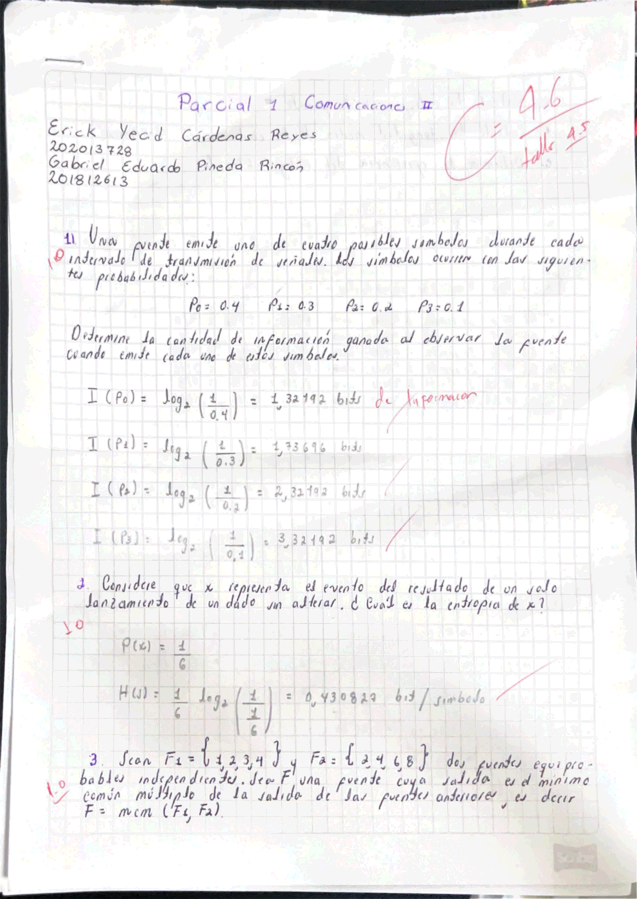 Parcial 1 Comunicaciones II
C = 4.6
taller 4.5
Erick Yecid Cárdenas Reyes
202013728
Gabriel Eduardo Pineda Rincón
201812613
1) Una fuente emite uno de cuatro posibles simbolos durante cada
1,0 intervalo de transmisión de señales. Los simbolos ocurren con las siguien-
tes probabilidades:
P0 = 0.4 P1 = 0.3 P2 = 0.2 P3 = 0.1
Determine la cantidad de información ganada al observar la fuente
cuando emite cada uno de estos simbolos.
I (P0) = log2 (1/0.4) = 1,32192 bits de Informacion
I (P1) = log2 (1/0.3) = 1,73696 bits
I (P2) = log2 (1/0.2) = 2,32192 bits
I (P3) = log2 (1/0,1) = 3,32192 bits
2. Considere que x representa el evento del resultado de un solo
lanzamiento de un dado sin alterar. ¿ Cuál es la entropia de x?
1.0
P(x) = 1/6
H(s) = 1/6 log2 (1/(1/6)) = 0,430827 bit / simbolo
3. Sean F1 = { 1, 2, 3, 4 } y F2 = { 2, 4, 6, 8 } dos fuentes equipro-
bables independientes. Sea F una fuente cuya salida es el minimo
1.0 común múltiplo de la salida de las fuentes anteriores, es decir
F = mcm (F1, F2).
Scribe